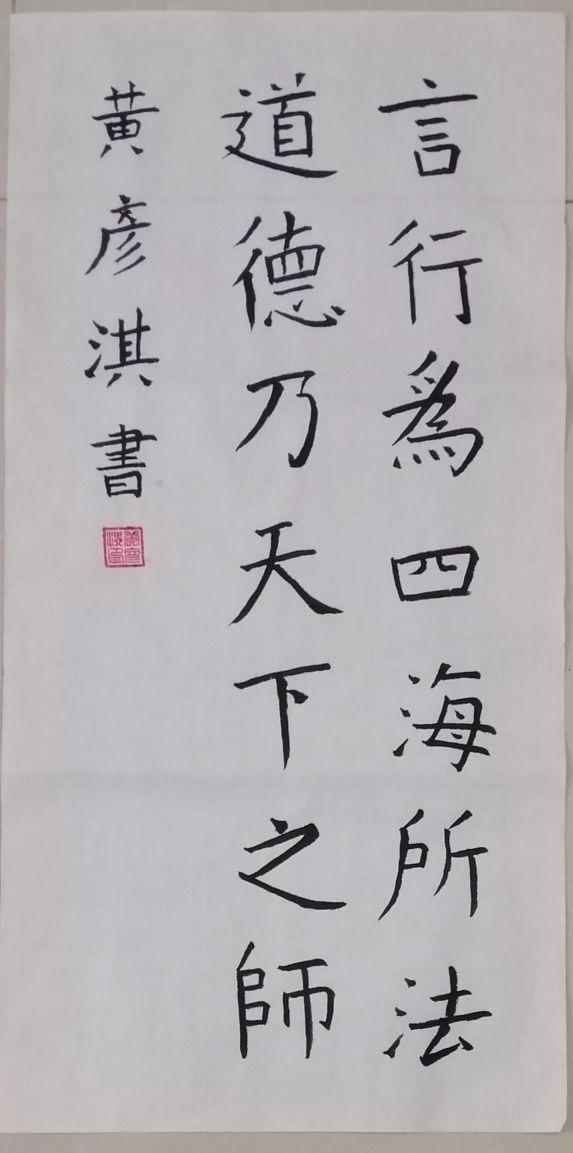 言行爲四海所法
道德乃天下之師
黃彥淇書